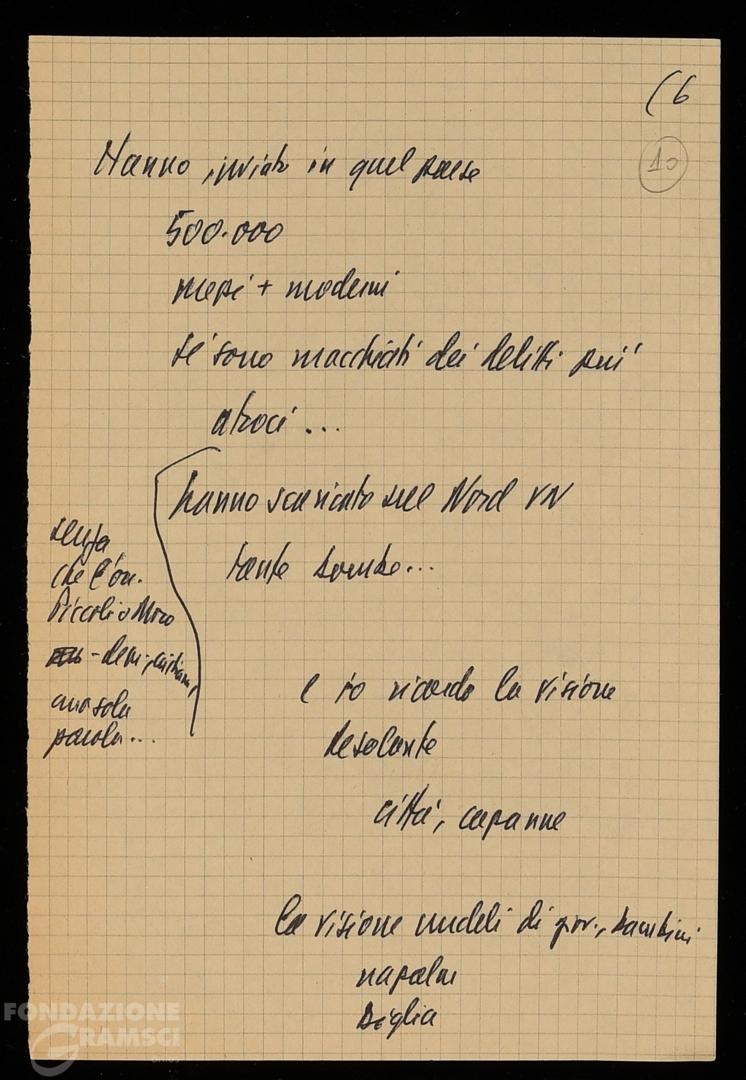 (6
10
Hanno inviato in quel paese
500.000
mezzi + moderni
si sono macchiati dei delitti più
atroci ...
hanno scaricato sul Nord VN
tante bombe...
senza
che l'on.
Piccoli o Moro
una sola
parola...
e io ricordo la visione
desolante
città, capanne
la visione di giov., bambini
napalm
biglia
FONDAZIONE
GRAMSCI